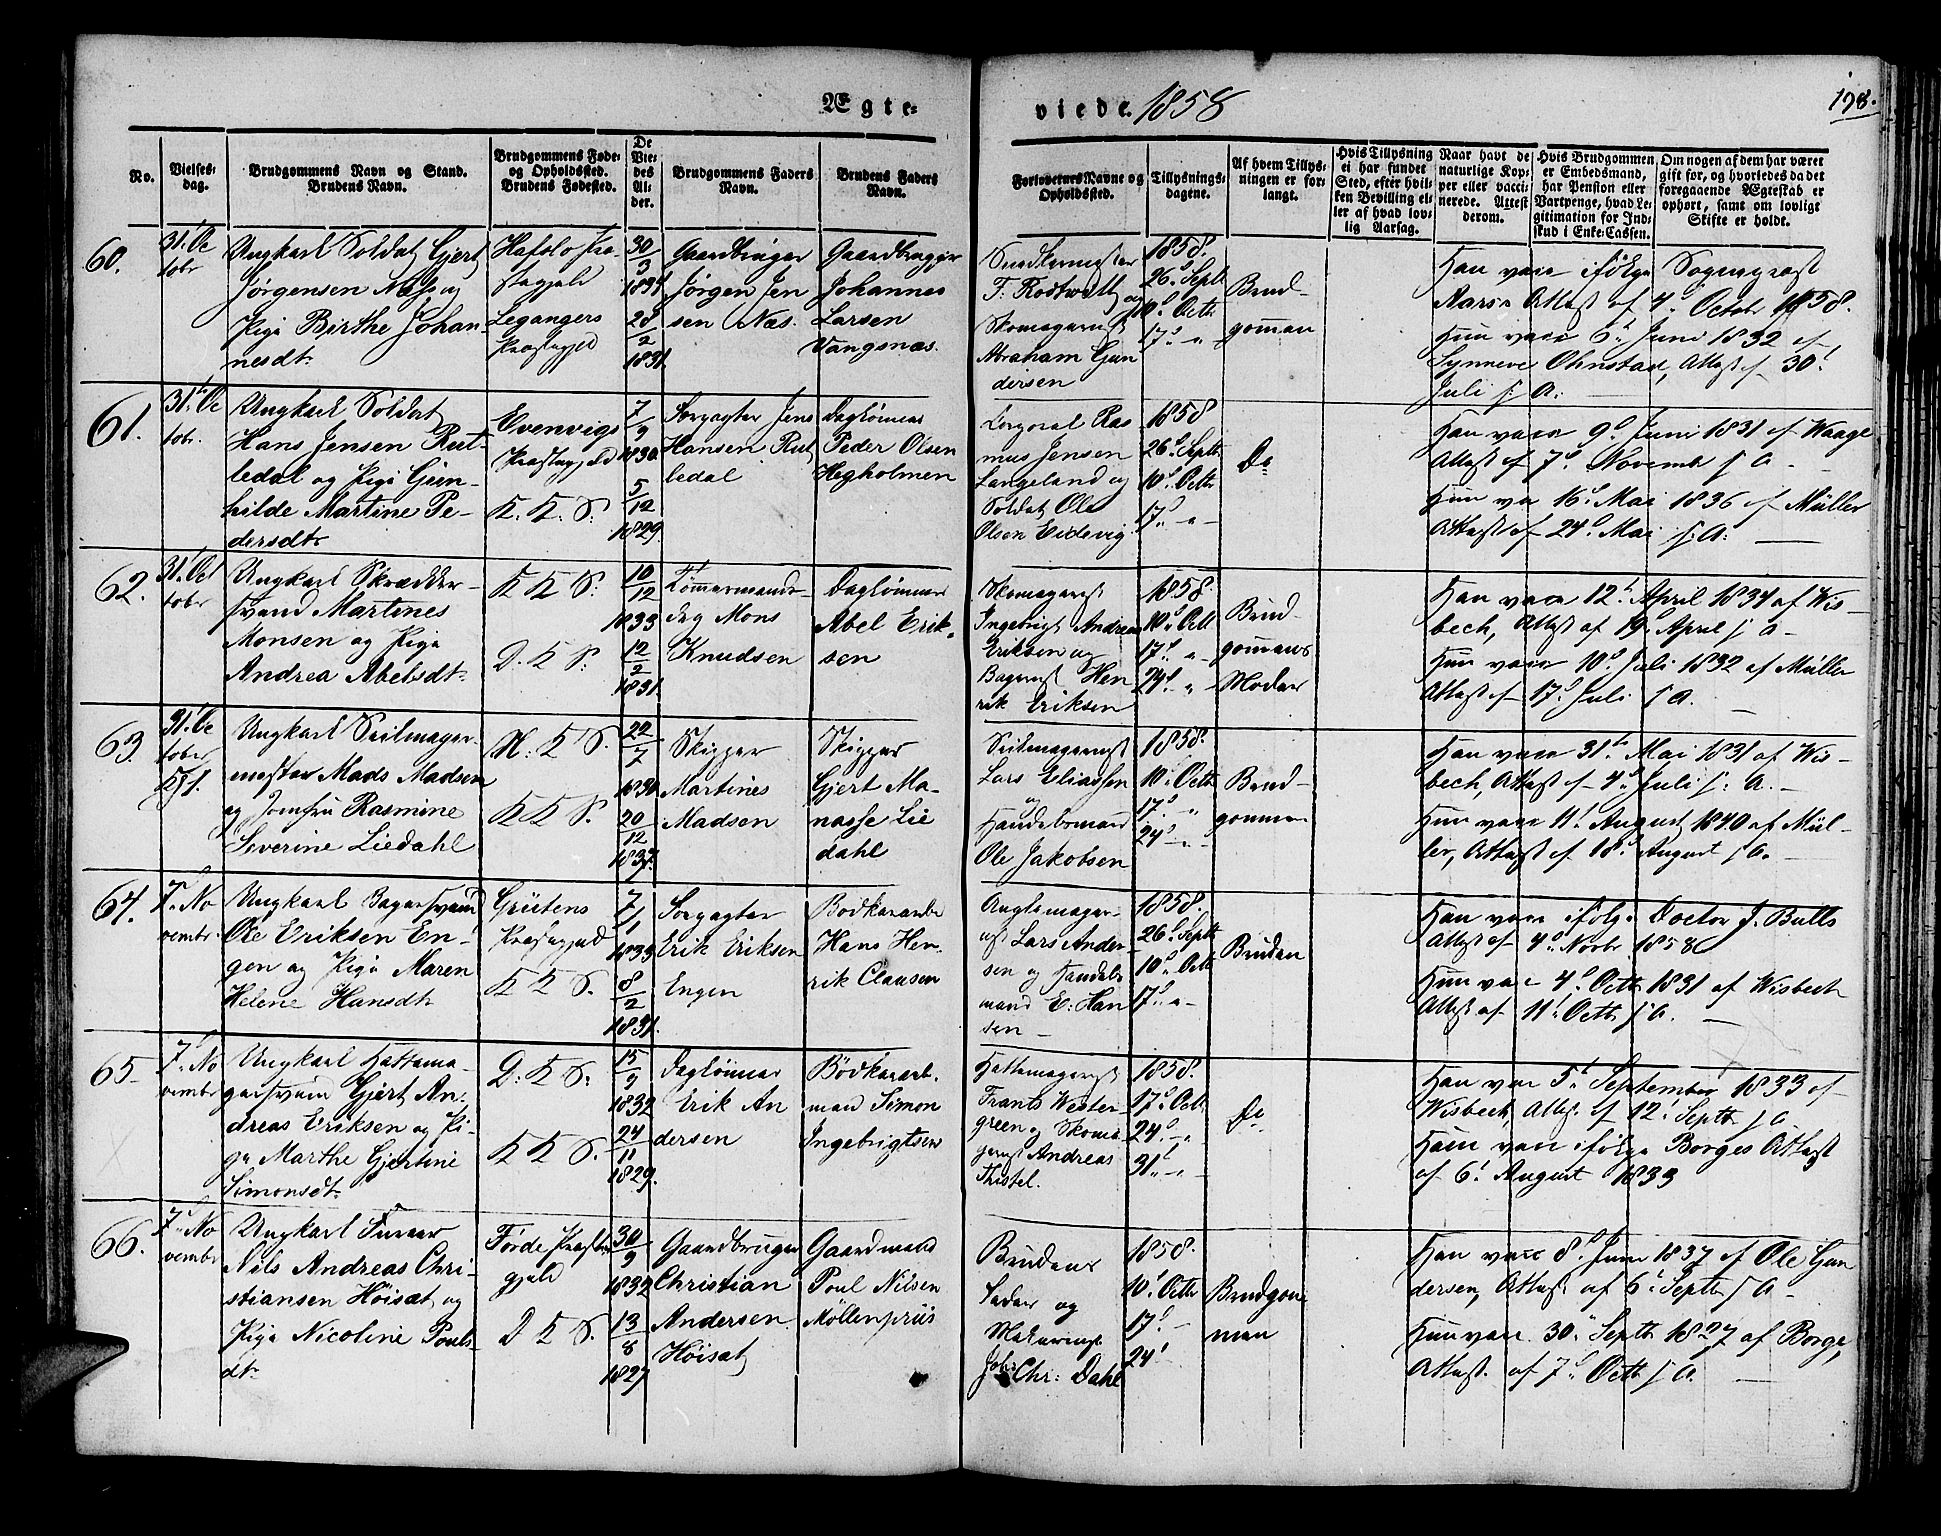 Ægte-
viede. 1858
198.
No.
Vielses-
dag.
Brudgommens Navn og Stand.
Brudens Navn.
Brudgommens Føde-
og Opholdssted.
Brudens Fødested.
De
Vie-
des
Al-
der.
Brudgommens Faders
Navn.
Brudens Faders
Navn.
Forlovernes Navne og
Opholdssted.
Tillysnings-
dagene.
Af hvem Tillys-
ningen er for-
langt.
Hvis Tillysning
ei har fundet
Sted, efter hvil-
ken Bevilling el-
ler af hvad lov-
lig Aarsag.
Naar havt de
naturlige Kop-
per eller vacci-
nerede. Attest
derom.
Hvis Brudgommen
er Embedsmand,
har Pension eller
Vartpenge, hvad Le-
gitimation for Ind-
skud i Enke-Cassen.
Om nogen af dem har været
gift før, og hvorledes da det
foregaaende Ægteskab er
ophørt, samt om lovligt
Skifte er holdt.
60.
31. Oc
tobr
Ungkarl Soldat Gjert
Jørgensen Næs og
Pige Birthe Johan
nesdt.
Hafslo Præ-
stegjeld
Legangers
Præstegjeld
30
3
1834
28
2
1831.
Gaardbruger
Jørgen Jen
sen Næs.
Gaardbruger
Johannes
Larsen
Vangsnæs.
Snedkermester
T. Rostwolt og
Skomagersv.
Abraham Gun
dersen
1858.
26. Sept
10. Octb
17. "
Brud-
goman
Han vacc ifølge Sogneprest
Aars Attest af 4. October 1858.
Hun vacc 6. Juni 1832 af
Synneve Ohnstad, Attest af 30.
Juli s. A.
61.
31. Oc
tobr.
Ungkarl Soldat
Hans Jensen Rut-
ledal og Pige Gun-
hilde Martine Pe-
dersdt.
Evenvigs
Præstegjeld
K. K. S.
7
9
1830.
5
12
1829
Forpagter Jens
Hansen Rut
ledal
Daglønner
Peder Olsen
Hegholmen
Corporal Ras
mus Jensen
Langeland og
Soldat Ole
Olsen Eidevig.
1858
26. Septb
10. Octb
17. " -
Do
Han vacc 9. Juni 1831 af Waage
Attest af 7. Novemb s. A. -
Hun va 16. Mai 1836 af Müller
Attest af 24. Mai s. A. -
62.
31. Oct
tobr
Ungkarl Skrædder-
svend Martines
Monsen og Pige
Andrea Abelsdt.
K K S.
D. K S.
10
12
1833
12
2
1831.
Tømmermands-
dreng Mons
Knudsen
Daglønner
Abel Erik-
sen
Skomagersv.
Ingebrigt Andreas
Eriksen og
Bagersv. Hen
rik Eriksen
1858.
10. Oct
17. "
24. "
Brud-
gomans
Moder
Han vacc 12. April 1834 af Wis-
bech, Attest af 19. April s. A -
Hun vacc 10. Juli 1832 af Müller
Attest af 17. Juli s. A. -
63.
31. Oc
tobr
Ungkarl Seilmager-
mester Mads Madsen
og Jomfru Rasmine
Severine Liedahl
N. K S.
K K S.
22
7
1830.
20
12
1837.
Skipper
Martines
Madsen
Skipper
Gjert Ma-
nasse Lie
dahl
Seilmagermst.
Lars Eliassen
og
Handelsmand
Ole Jakobsen
1858.
10. Octb
17. "
24. - -
Brud-
goman
Han vacc 31. Mai 1831 af Wis-
bech, Attest af 4. Juli s. A. -
Hun vacc 11. August 1840 af Mül-
ler, Attest af 18. August s. A. -
64.
7. No
vembr.
Ungkarl Bagersvend
Ole Eriksen En-
gen og Pige Maren
Helene Hansdt.
Grütens
Præstegjeld
K K S.
7
1
1833
8
2
1831.
Forpagter
Erik Eriksen
Engen
Bødkerarbr
Hans Hen
rik Clausen
Lars Ander-
sen og Handels
mand E. Han
sen -
1858.
26. Septb
10. Octb
17. " -
Bruden
Han vacc ifølge Doctor J. Bulls
Attest af 4. Novbr 1858
Hun vac 4. Octb 1831 af Wisbech
Attest af 11. Octb s. A. -
65-
7. No
vembr
Ungkarl Hattema-
gersvend Gjert An-
dreas Eriksen og Pi-
ge Marthe Gjertine
Simonsdt.
D. K S.
K K S.
15
9
1832
24
11
1829.
Daglønner
Erik An
dersen
Bødkerarb.
mand Simon
Ingebrigtsen
Hattemagersv.
Frants Wester
green og Skoma
gersv. Andreas
Thistel.
1858.
17. Octb
24. - "
31. " -
Do
Han vac 5. September 1833 af
Wisbech, Attest af 12. Septb s. A
Hun vacc ifølge Borges Attest
af 6. August 1833
66.
7. No
vembr
Ungkarl Turner
Nils Andreas Chri-
stiansen Høisæt og
Pige Nicoline Pouls-
dt.
Førde Præste-
gjeld
D K S.
30
9
1832
13
8
1827
Gaardbruger
Christian
Andersen
Høisæt
Gaardmand
Poul Nilsen
Möllenpriis
Brudens
Fader og
Johs Chr. Dahl
1858.
10. Octb
17. -
24.
Brudgom
man
Han vacc 8. Juni 1837 af Ole Gun
dersen, Attest af 6. Septb s. A -
Hun vacc 30. Septb 1827 af Borge,
Attest af 7. Octb s. A. -